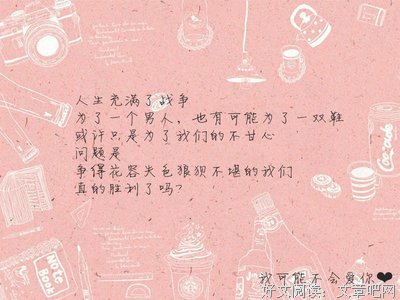 人生充满了战争
为了一个男人，也有可能为了一双鞋
或许只是为了我们的不甘心
问题是
争得花容失色狼狈不堪的我们
真的胜利了吗？
Coca Cola
Note
Book
我可能不会爱你❤
好文阅读：文章吧网